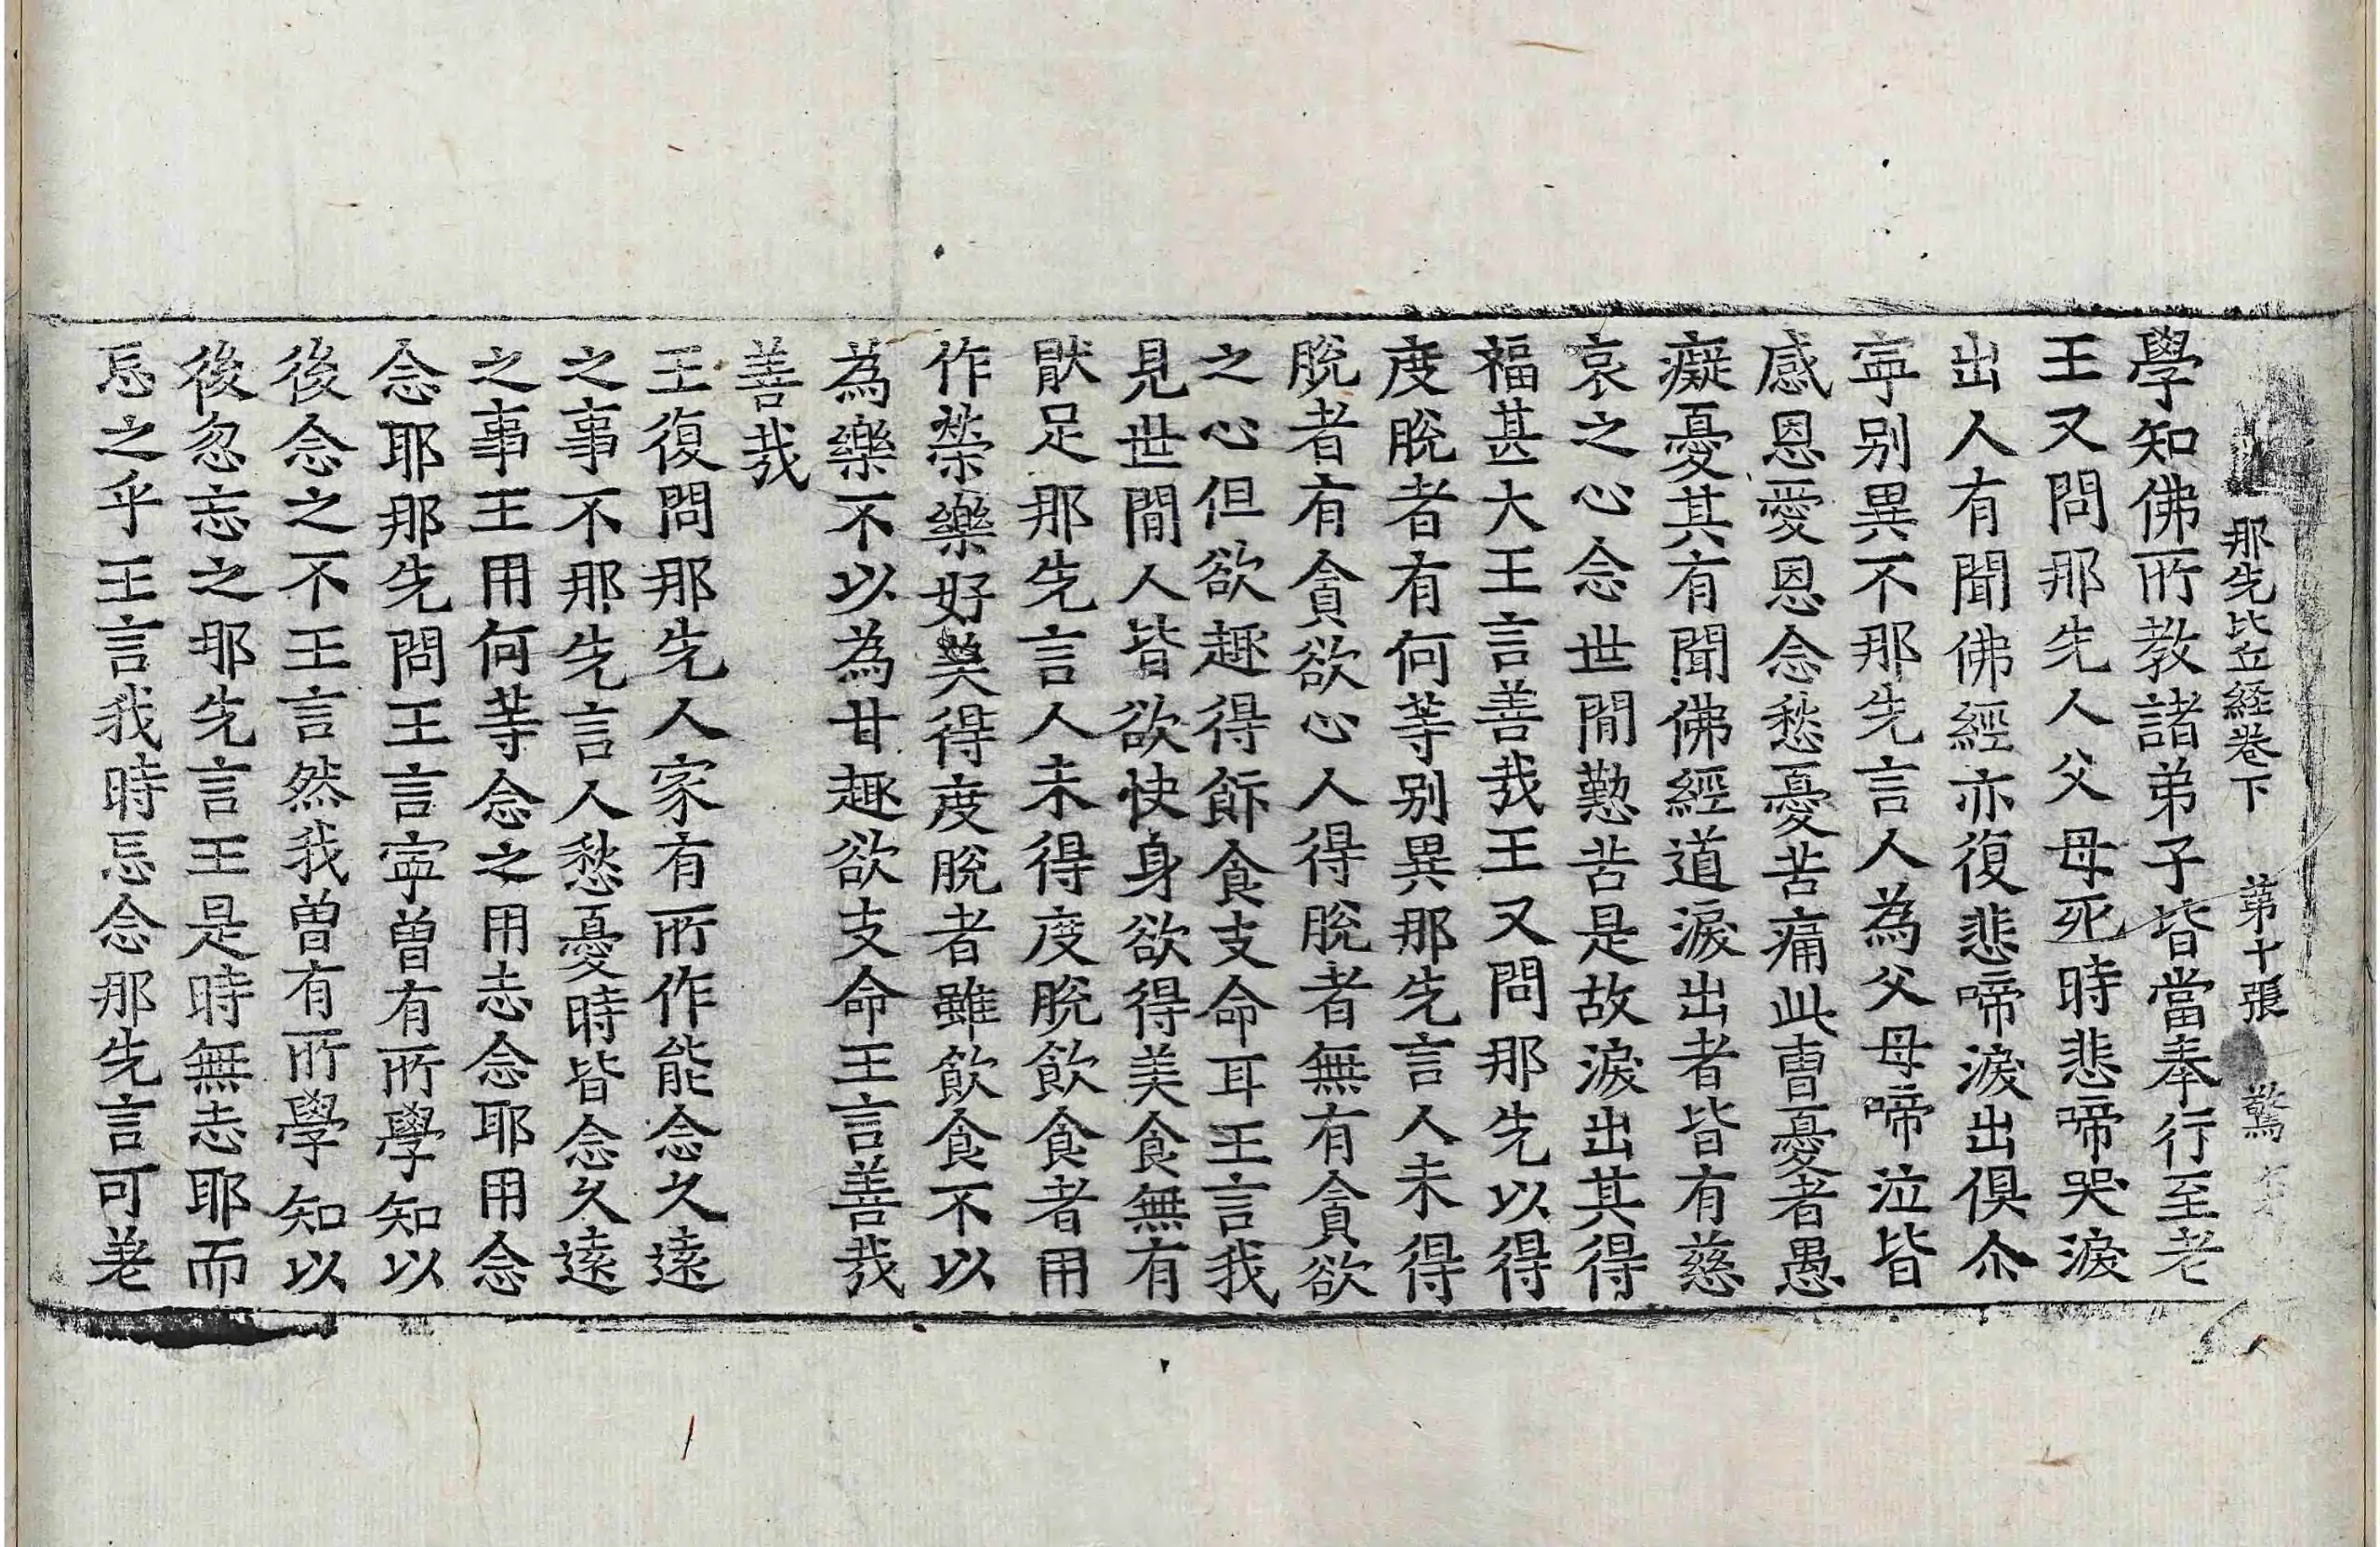 那先比丘経卷下　第十張　驚
學知佛所教諸弟子皆當奉行至老
王又問那先人父母死時悲啼哭淚
出人有聞佛經亦復悲啼淚出俱尒
寜别異不那先言人為父母啼泣皆
感恩愛恩念愁憂苦痛此曺憂者愚
癡憂其有聞佛經道淚出者皆有慈
哀之心念世閒勤苦是故淚出其得
福甚大王言善哉王又問那先以得
度脫者有何等别異那先言人未得
脫者有貪欲心人得脫者無有貪欲
之心但欲趣得飾食支命耳王言我
見世閒人皆欲快身欲得美食無有
猒足那先言人未得度脫飲食者用
作榮樂好美得度脫者雖飲食不以
為樂不以為甘趣欲支命王言善哉
善哉
王復問那先人家有所作能念久遠
之事不那先言人愁憂時皆念久遠
之事王用何等念之用志念耶用念
念耶那先問王言寜曾有所學知以
後念之不王言然我曾有所學知以
後忽忘之耶先言王是時無志耶而
忘之乎王言我時忘念那先言可差